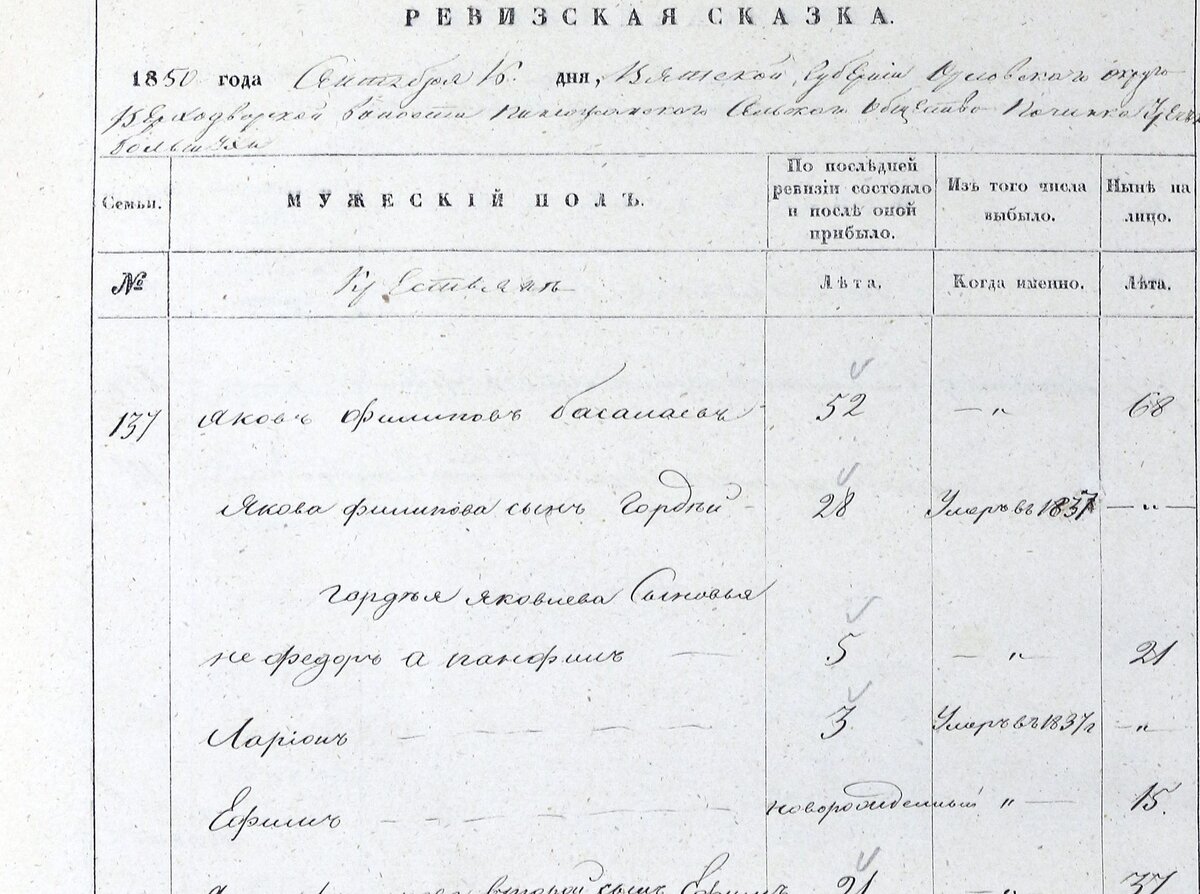 РЕВИЗСКАЯ СКАЗКА.
1850 года Сентября 16. дня, Вятской Губернiи Орловскаго округа
Верходворской Волости Сельскаго Общества Починка
Большуя
Семьи.
МУЖЕСКIЙ ПОЛЪ.
По послѣдней ревизiи состояло и послѣ оной прибыло.
Изъ того числа выбыло.
Нынѣ на лицо.
№
Крестьянъ
Лѣта.
Когда именно.
Лѣта.
137 Яковъ Филиповъ Басалаевъ - 52 — „ 68
Якова Филипова сынъ Гордѣй - 28 Умеръ въ 1837 — „ —
Гордѣя Яковлева Сыновья
не Федоръ а Панфилъ — 5 — „ 21
Ларiонъ — — — — — 3 Умеръ въ 1837г — „
Ефимъ — — — — — новорожденный „ — 15.
второй сынъ Ефимъ 21 — „ 37